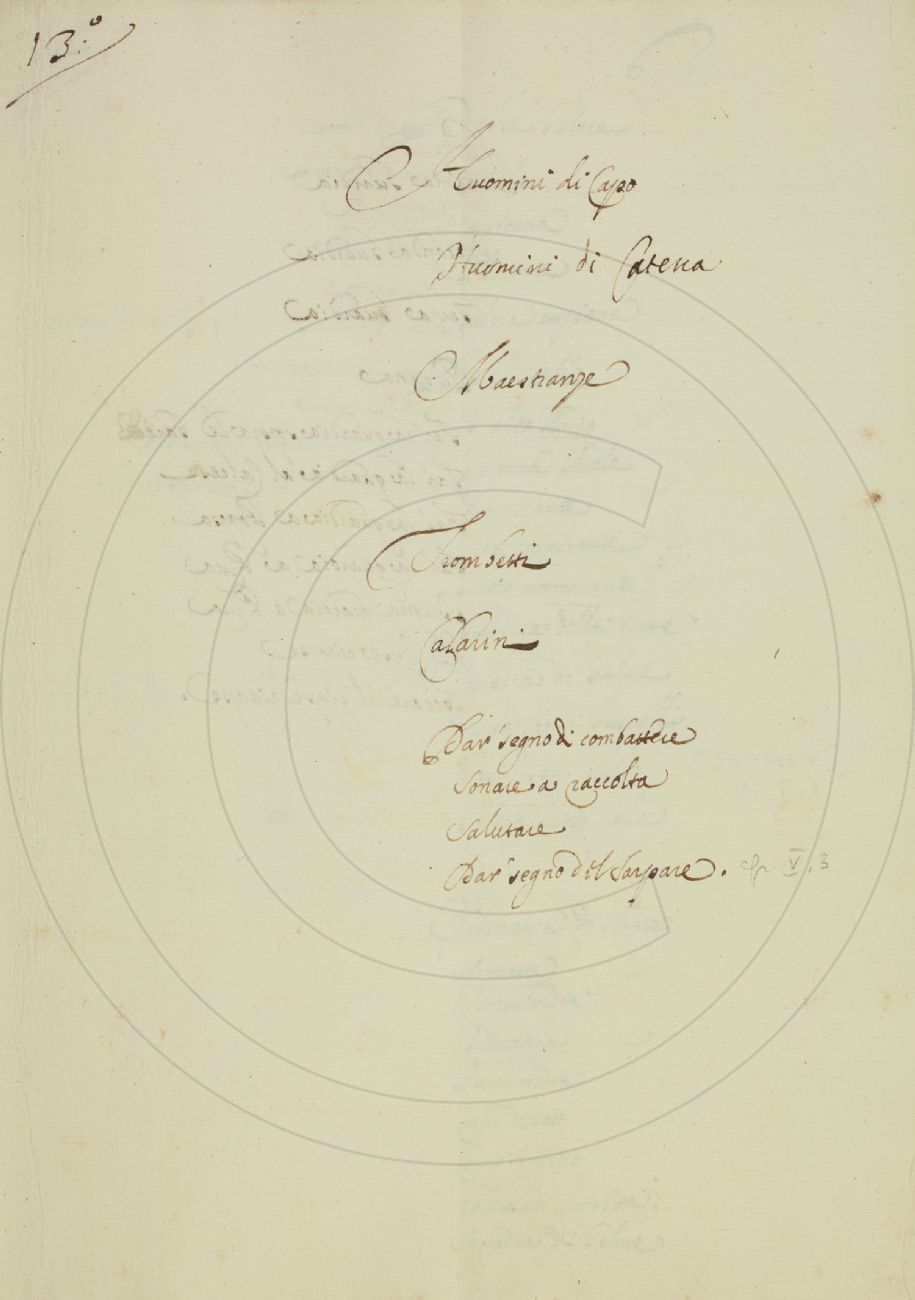 13:º
Huomini di Capo
Huomini di Catena
Maestranze
Trombetti
Calarini
Dar' segno di combattere
Sonare a raccolta
Salutare
Dar' segno del Sarpare. V, 3